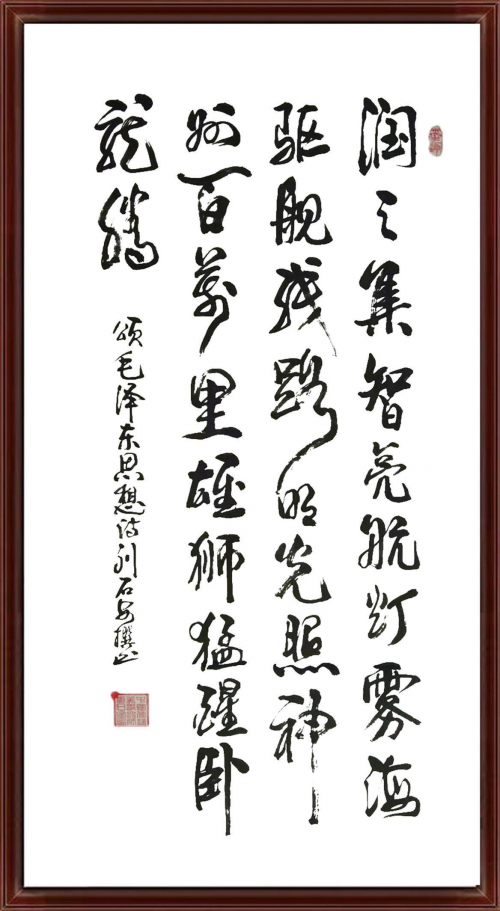 润之集智亮航灯雾海
驱舰线路明光照神
州百萬里雄狮猛醒卧
龙腾
颂毛泽东思想诗列石安撰书